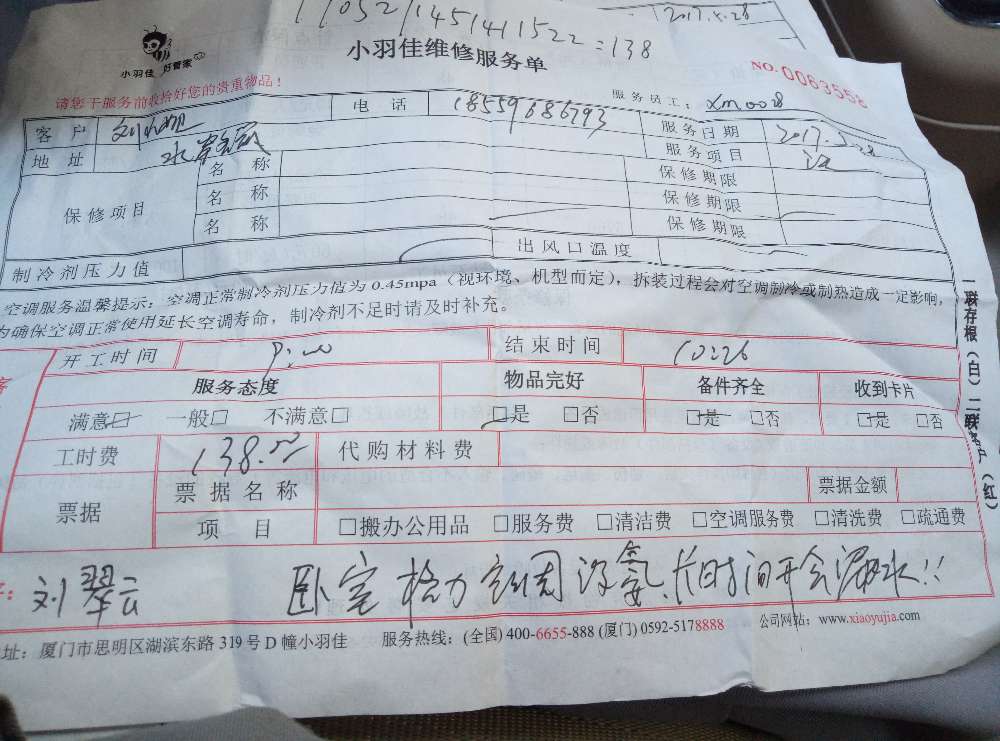 17052114514111522=138
2017.5.28
小羽佳 好管家
小羽佳维修服务单
NO.0063558
请您于服务前收拾好您的贵重物品！
服务员工： xm0028
客户 电话 18559686793 服务日期 2017.5.28
地址 服务项目
保修项目 名称 保修期限
名称 保修期限
名称 保修期限
制冷剂压力值 出风口温度
空调服务温馨提示：空调正常制冷剂压力值为 0.45mpa（视环境、机型而定），拆装过程会对空调制冷或制热造成一定影响，
为确保空调正常使用延长空调寿命，制冷剂不足时请及时补充。
开工时间 结束时间 10:26
服务态度 物品完好 备件齐全 收到卡片
满意□ 一般□ 不满意□ □是 □否 □是 □否 □是 □否
工时费 138.00 代购材料费
票据 票据名称 票据金额
项目 □搬办公用品 □服务费 □清洁费 □空调服务费 □清洗费 □疏通费
刘翠云 卧室格力空调 长时间开会漏水!!
址：厦门市思明区湖滨东路 319 号 D 幢小羽佳 服务热线：(全国) 400-6655-888 (厦门) 0592-5178888 公司网站：www.xiaoyujia.com
一联存根（白）二联客户（红）